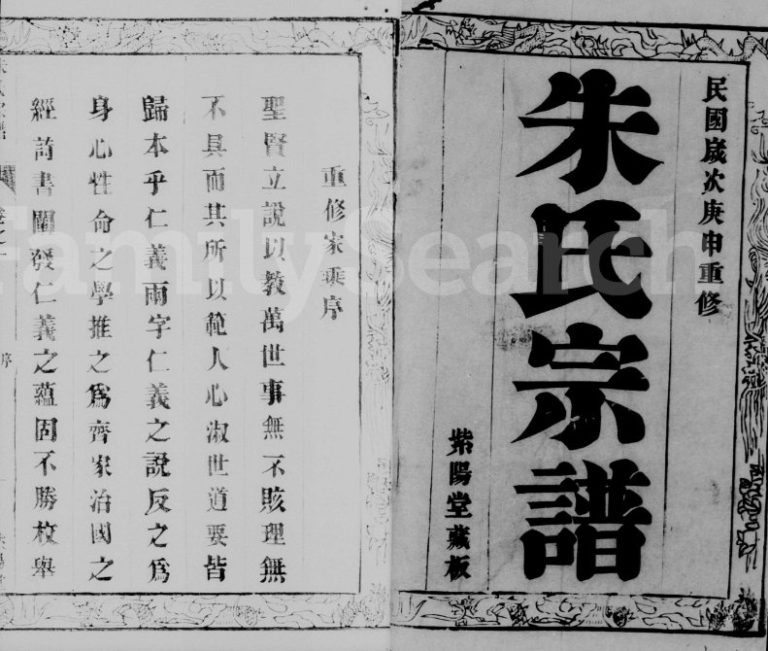 民國歲次庚申重修
朱氏宗譜
紫陽堂藏板
重修家乘序
聖賢立說以教萬世事無不賅理無
不具而其所以範人心淑世道要皆
歸本乎仁義兩字仁義之說反之為
身心性命之學推之為齊家治國之
經詩書闡發仁義之蘊固不勝枚舉
序
FamilySearch